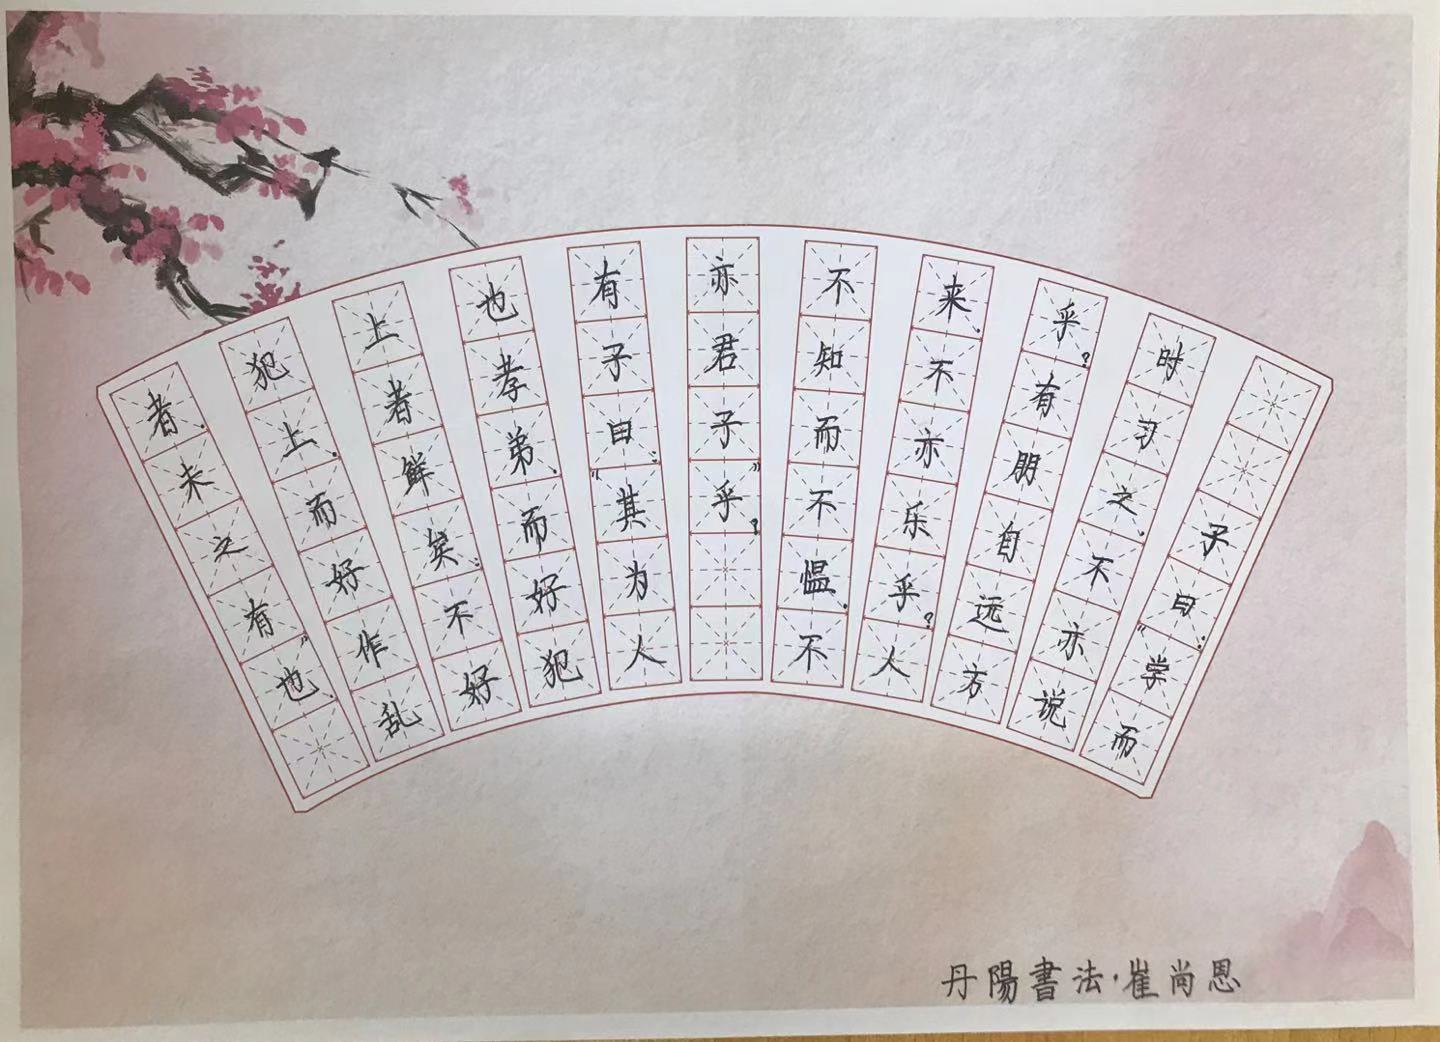 子曰：“学而
时习之，不亦说
乎？有朋自远方
来，不亦乐乎？人
不知而不愠，不
亦君子乎？”
有子曰：“其为人
也孝弟，而好犯
上者鲜矣；不好
犯上，而好作乱
者，未之有也”
丹陽書法·崔尚恩